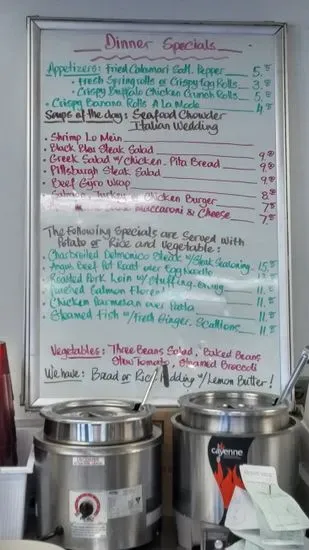 Dinner Specials
Appetizers: Fried Calamari Salt, Pepper 5.
• Fresh Spring rolls or Crispy Egg Rolls 3.
• Crispy Buffalo Chicken Crunch Rolls 5.
• Crispy Banana Rolls A La Mode 4.
Soups of the day: Seafood Chowder
Italian Wedding
• Shrimp Lo Mein
• Black Blau Steak Salad
• Greek Salad w/ Chicken. Pita Bread 9.
• Pittsburgh Steak Salad 9.
• Beef Gyro Wrap 9.
Salmon, Turkey Chicken Burger 8.
Maccaroni & Cheese 7.
The following Specials are Served with
Potato or Rice and Vegetable:
• Charbroiled Delmonico Steak w/ Steak Seasoning. 15.
• Angus Beef Pot Roast over Egg Noodle
• Roasted Pork Loin w/ Stuffing. Gravy 11.
Salmon 11.
• Chicken Parmesan over Pasta 11.
• Steamed Fish w/ Fresh Ginger, Scallions. 11.
Vegetables: Three Beans Salad, Baked Beans
Stew Tomato, Steamed Broccoli
We have: Bread or Rice Pudding w/ Lemon Butter!
cayenne